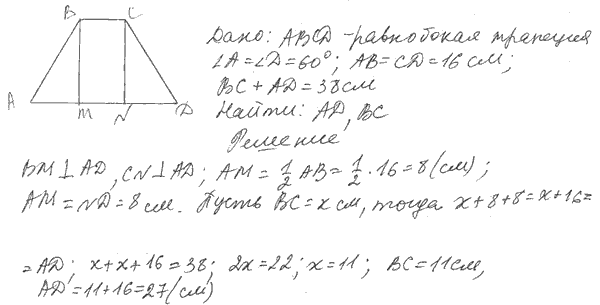 B C
Дано: ABCD - равнобокая трапеция
∠A=∠D=60°; AB=CD=16 см;
BC + AD = 38 см
A M N D
Найти: AD, BC
Решение
BM⊥AD, CN⊥AD; AM = 1/2 AB = 1/2 · 16 = 8 (см);
AM = ND = 8 см. Пусть BC = x см, тогда x+8+8=x+16=
=AD; x+x+16=38; 2x=22; x=11; BC=11 см,
AD=11+16=27 (см)